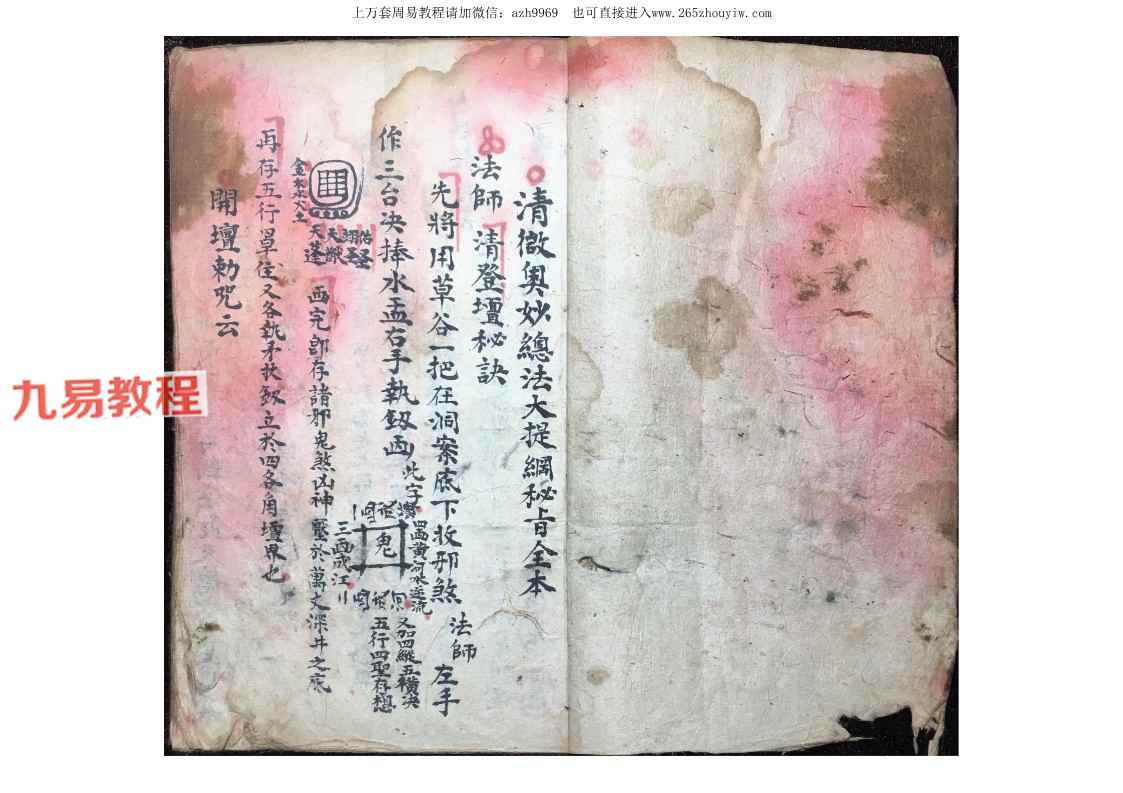 上万套周易教程请加微信：azh9969　也可直接进入www.265zhouyiw.com
清微奥妙總法大提綱秘旨全本
法師 清登壇秘訣
先將用草谷一把在洞案底下收邪煞 法師 左手
作三台决捧水盂右手執劔画此字
四画黄河水逆流
鬼
三画成江川
又加四縱五横决
五行四聖存想
佑圣
翊圣
天猷
天蓬
画完即存諸邪鬼煞凶神壓於萬丈深井之底
金木水火土
再存五行罩住又各執矛扶劔立於四各角壇界也
開壇勅咒云
九易教程